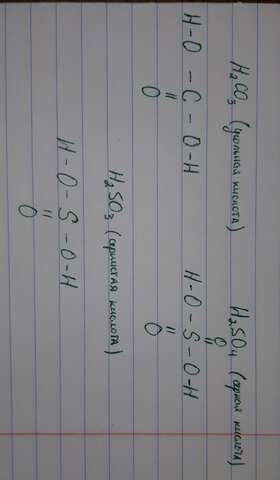 H₂CO₃ (угольная кислота)
H-O-C-O-H
=
O
H₂SO₄ (серная кислота)
O
=
H-O-S-O-H
=
O
H₂SO₃ (сернистая кислота)
H-O-S-O-H
=
O